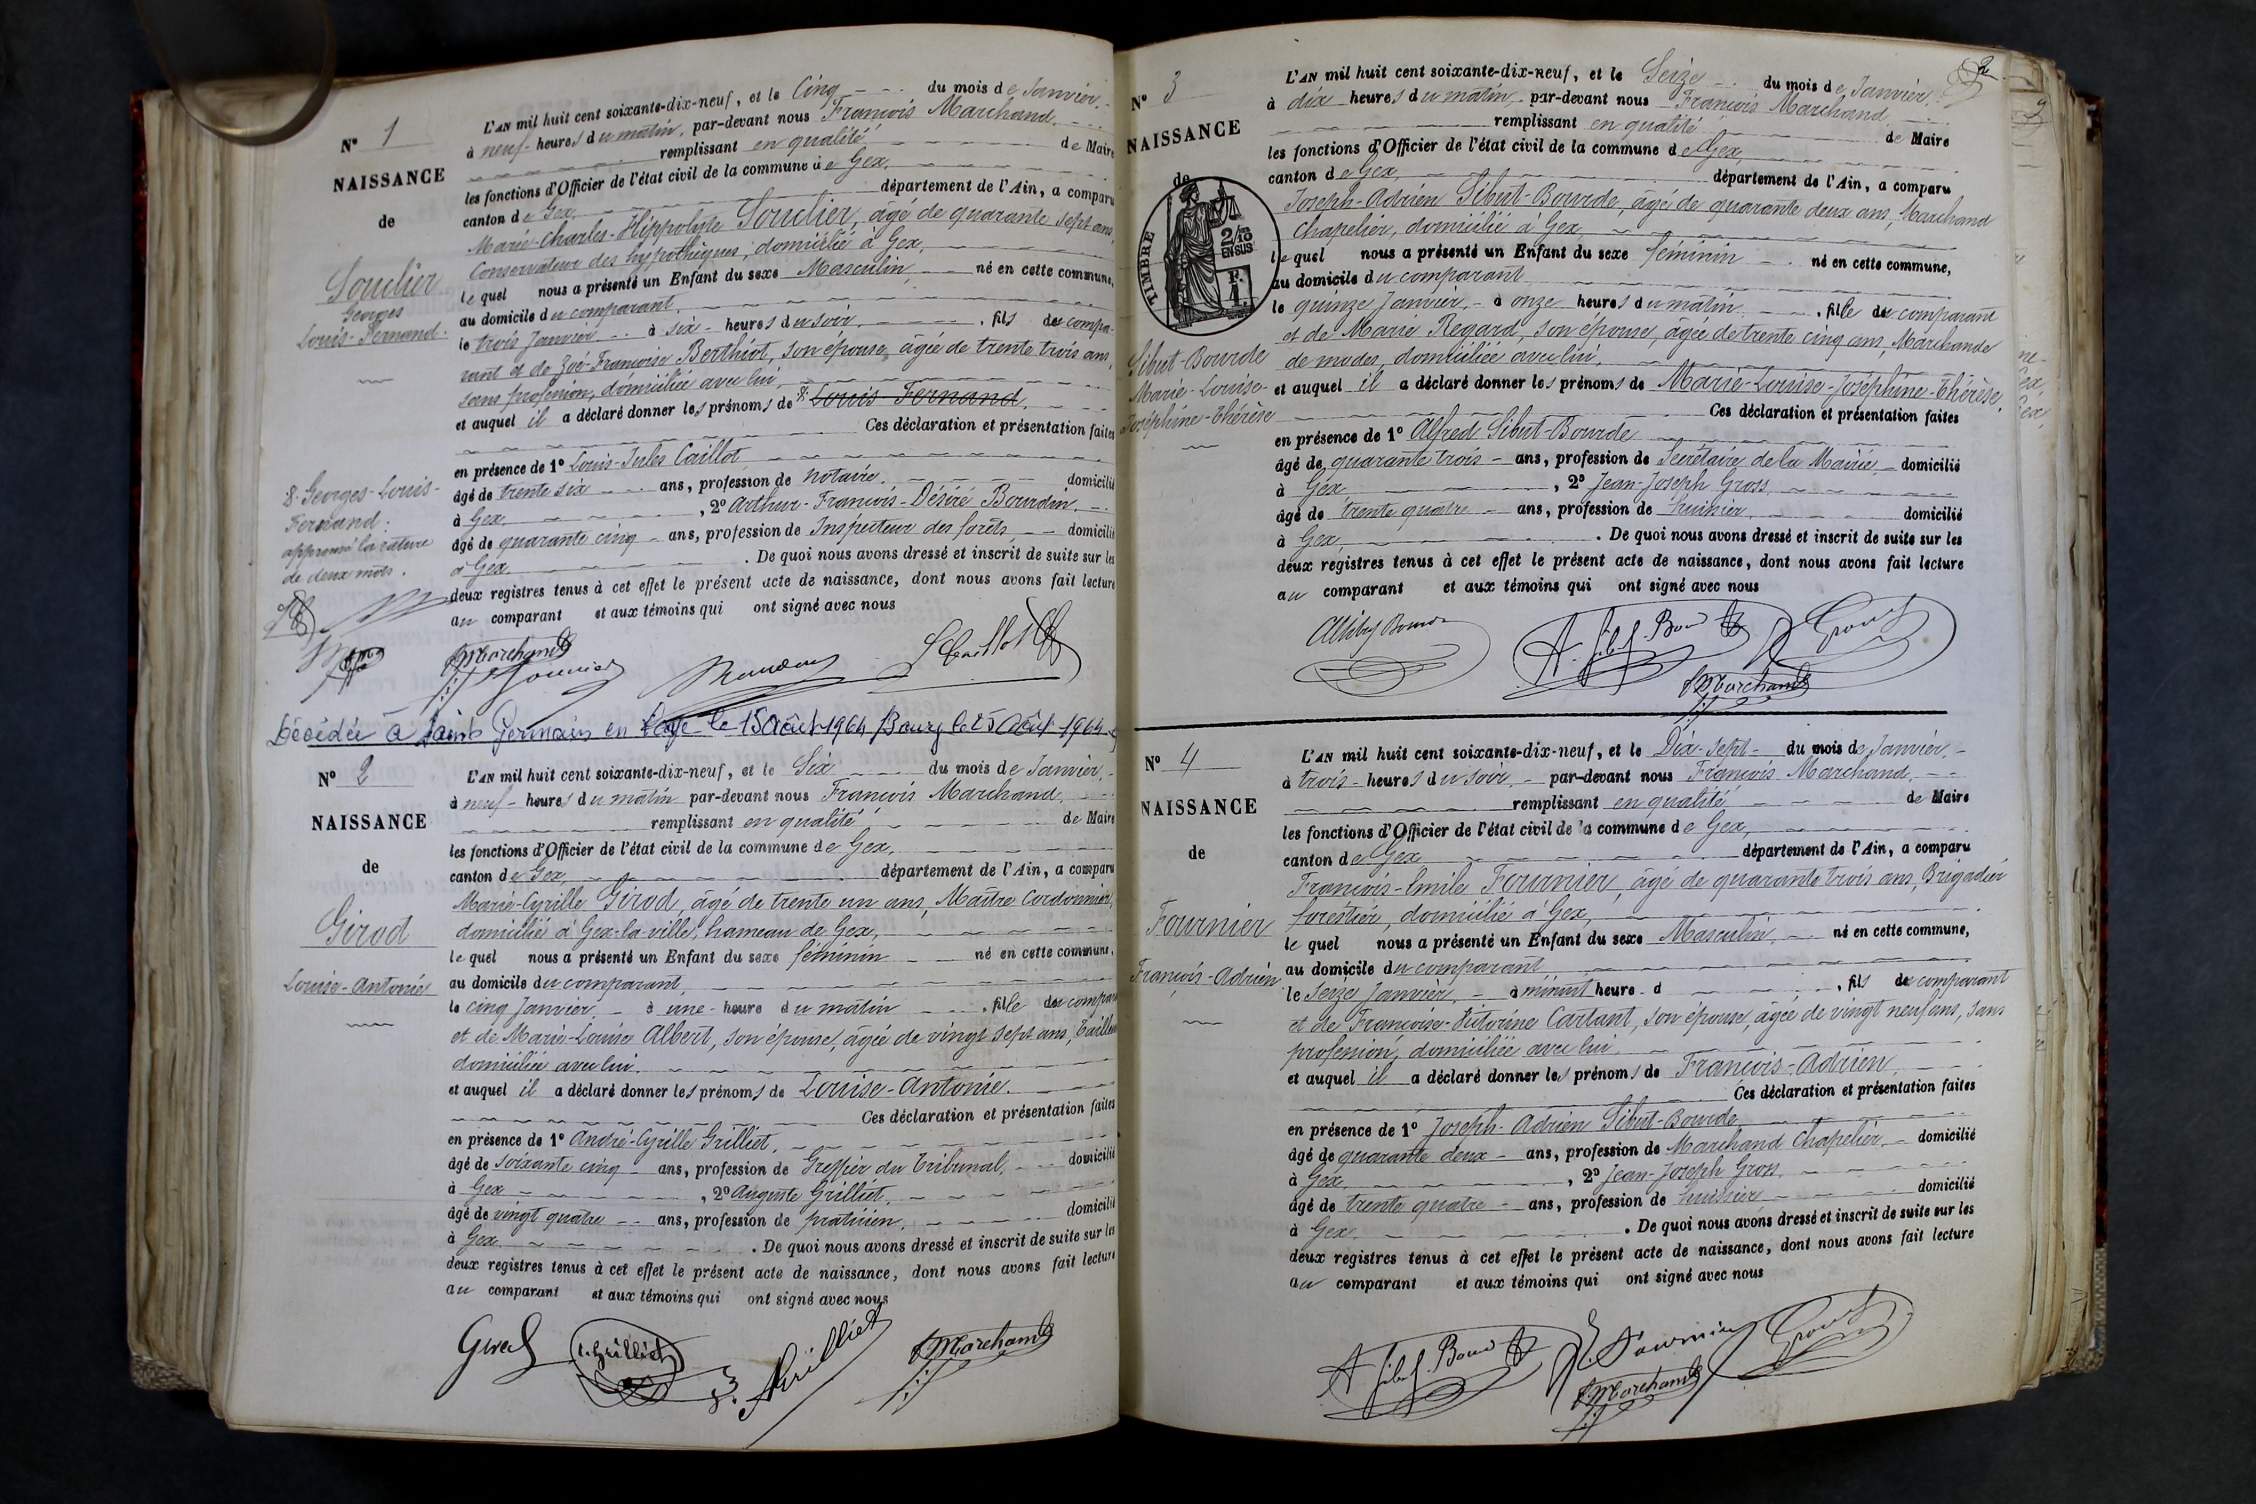 N° 1
NAISSANCE
de
Soudier
Georges
Louis-Fernand.
L'AN mil huit cent soixante-dix-neuf, et le Cinq du mois de Janvier,
à neuf heures du matin, par-devant nous François Marchand,
remplissant en qualité de Maire
les fonctions d'Officier de l'état civil de la commune de Gex,
canton de Gex, département de l'Ain, a comparu
Marie-Charles-Hippolyte Soudier, âgé de quarante sept ans,
Conservateur des hypothèques, domicilié à Gex,
lequel nous a présenté un Enfant du sexe Masculin, né en cette commune,
au domicile du comparant,
le trois Janvier à six heures du soir, fils du compa-
rant et de Zoé-Françoise Berthiot, son épouse, âgée de trente trois ans,
sans profession, domiciliée avec lui,
et auquel il a déclaré donner les prénoms de Louis Fernand.
Ces déclaration et présentation faites
en présence de 1° Louis-Jules Caillot
âgé de trente six ans, profession de notaire, domicilié
à Gex, 2° Arthur-François-Désiré Bourdin,
âgé de quarante cinq ans, profession de Inspecteur des forêts, domicilié
à Gex. De quoi nous avons dressé et inscrit de suite sur les
deux registres tenus à cet effet le présent acte de naissance, dont nous avons fait lecture
au comparant et aux témoins qui ont signé avec nous
Georges-Louis-
Fernand.
approuvé la rature
de deux mots.
Marchand
Décédée à Saint Germain en Laye le 15 Août 1964 Bourg le 25 Août 1964
N° 2
NAISSANCE
de
Girod
Louise-Antonie
L'AN mil huit cent soixante-dix-neuf, et le Six du mois de Janvier,
à neuf heures du matin par-devant nous François Marchand,
remplissant en qualité de Maire
les fonctions d'Officier de l'état civil de la commune de Gex,
canton de Gex, département de l'Ain, a comparu
Marie-Cyrille Girod, âgé de trente un ans, Maître Cordonnier,
domicilié à Gex-la-ville, hameau de Gex,
lequel nous a présenté un Enfant du sexe féminin né en cette commune,
au domicile du comparant,
le cinq Janvier, à une heure du matin, fille du compar
et de Marie-Louise Albert, son épouse, âgée de vingt sept ans,
domiciliée avec lui,
et auquel il a déclaré donner les prénoms de Louise-Antonie.
Ces déclaration et présentation faites
en présence de 1° André-Cyrille Grilliet,
âgé de soixante cinq ans, profession de Greffier du Tribunal, domicilié
à Gex, 2° Auguste Grilliet,
âgé de vingt quatre ans, profession de praticien, domicilié
à Gex. De quoi nous avons dressé et inscrit de suite sur les
deux registres tenus à cet effet le présent acte de naissance, dont nous avons fait lecture
au comparant et aux témoins qui ont signé avec nous
Girod Grilliet Grilliet Marchand
2
N° 3
NAISSANCE
de
TIMBRE
2/10
EN SUS
F.
1.
Sibut-Bourde
Marie-Louise-
Joséphine-Thérèse
L'AN mil huit cent soixante-dix-neuf, et le Seize du mois de Janvier,
à dix heures du matin, par-devant nous François Marchand
remplissant en qualité de Maire
les fonctions d'Officier de l'état civil de la commune de Gex,
canton de Gex, département de l'Ain, a comparu
Joseph-Adrien Sibut-Bourde, âgé de quarante deux ans, Marchand
Chapelier, domicilié à Gex,
lequel nous a présenté un Enfant du sexe féminin né en cette commune,
au domicile du comparant
le quinze Janvier, à onze heures du matin, fille du comparant
et de Marie Regard, son épouse, âgée de trente cinq ans, Marchande
de modes, domiciliée avec lui,
et auquel il a déclaré donner les prénoms de Marie-Louise-Joséphine-Thérèse.
Ces déclaration et présentation faites
en présence de 1° Alfred Sibut-Bourde
âgé de quarante trois ans, profession de Secrétaire de la Mairie, domicilié
à Gex, 2° Jean-Joseph Gross
âgé de trente quatre ans, profession de huissier, domicilié
à Gex. De quoi nous avons dressé et inscrit de suite sur les
deux registres tenus à cet effet le présent acte de naissance, dont nous avons fait lecture
au comparant et aux témoins qui ont signé avec nous
Marchand
N° 4
NAISSANCE
de
Fournier
François-Adrien
L'AN mil huit cent soixante-dix-neuf, et le Dix-sept du mois de Janvier,
à trois heures du soir, par-devant nous François Marchand,
remplissant en qualité de Maire
les fonctions d'Officier de l'état civil de la commune de Gex,
canton de Gex département de l'Ain, a comparu
François-Emile Fournier, âgé de quarante trois ans, Brigadier
forestier, domicilié à Gex,
lequel nous a présenté un Enfant du sexe Masculin, né en cette commune,
au domicile du comparant
le Seize Janvier, à minuit heure d, fils du comparant
et de Françoise-Victorine Cartant, son épouse, âgée de vingt neuf ans, sans
profession, domiciliée avec lui,
et auquel il a déclaré donner les prénoms de François-Adrien
Ces déclaration et présentation faites
en présence de 1° Joseph-Adrien Sibut-Bourde
âgé de quarante deux ans, profession de Marchand Chapelier, domicilié
à Gex, 2° Jean-Joseph Gross,
âgé de trente quatre ans, profession de huissier domicilié
à Gex. De quoi nous avons dressé et inscrit de suite sur les
deux registres tenus à cet effet le présent acte de naissance, dont nous avons fait lecture
au comparant et aux témoins qui ont signé avec nous
Fournier Marchand